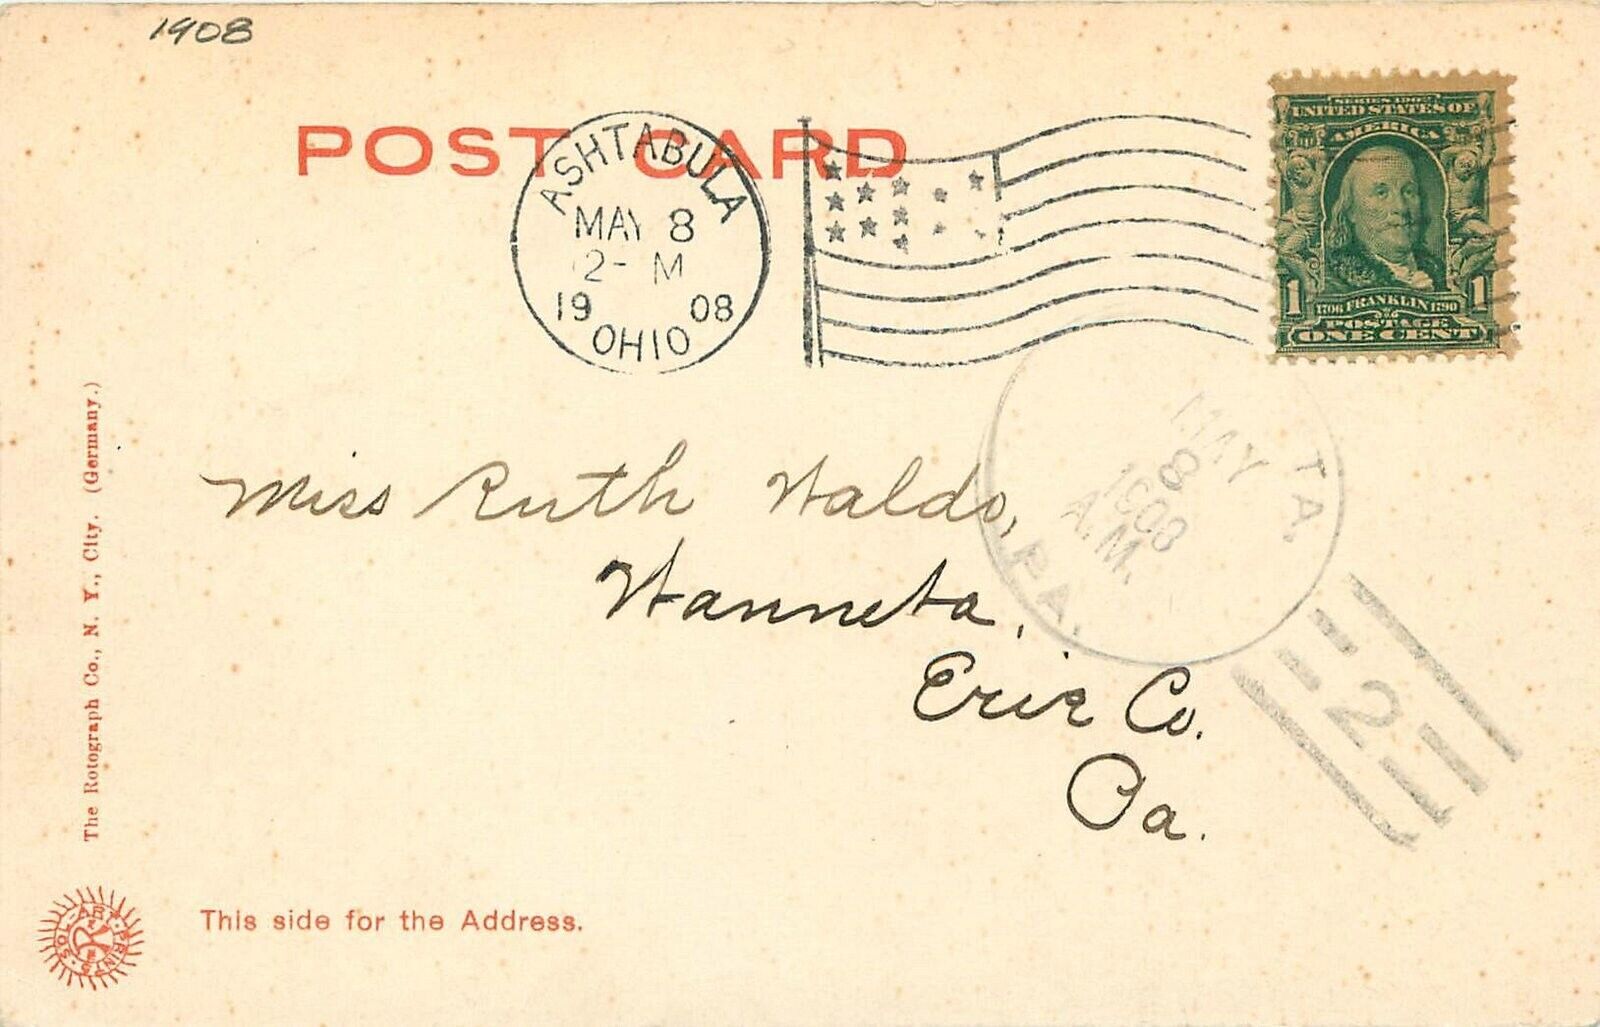 1908
POST CARD
ASHTABULA
MAY 8
2- M
19 08
OHIO
SERIES 1902
UNITED STATES OF
AMERICA
1 1706 FRANKLIN 1790 1
POSTAGE
ONE CENT
TA.
MAY
8
1908
A.M.
PA.
2
Miss Ruth Waldo,
Wanneta,
Erie Co.
Pa.
The Rotograph Co., N. Y., City. (Germany.)
SOL-ART-PRINTS
This side for the Address.